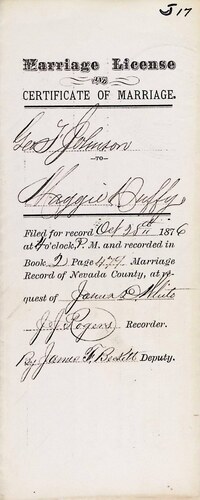 J 17
Marriage License
AND
CERTIFICATE OF MARRIAGE.
Geo. T. Johnson
-TO-
Maggie Duffy
Filed for record Oct 28th 1876
at 4 o'clock, P. M. and recorded in
Book 2 Page 479 Marriage
Record of Nevada County, at re-
quest of James D White
J. J. Rogers Recorder.
By James F. Deputy.